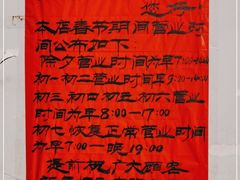 您好!
本店春节期间营业时
间公布如下
除夕营业时间为早7:00-16:00
初一初二营业时间
初三初四初五初六营业
时间为早8:00-17:00
初七恢复正常营业时间
为早7:00—晚19:00
提前祝广大顾客